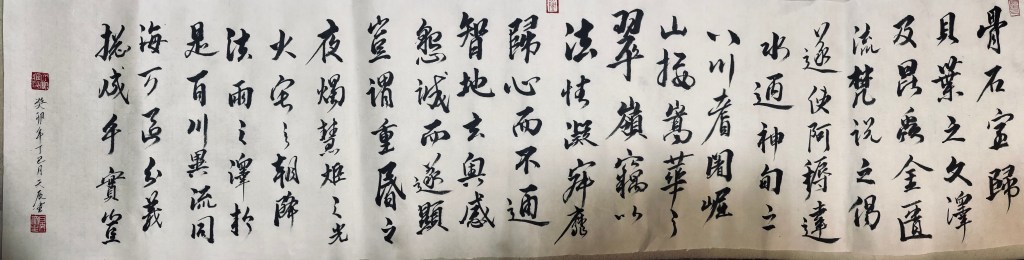 骨石室歸
貝葉之文澤
及昆蟲金匱
流梵說之偈
遂使阿耨達
水通神甸之
八川耆闍崛
山接嵩華之
翠嶺竊以
法性凝寂靡
歸心而不通
智地玄奧感
懇誠而遂顯
豈謂重昏之
夜燭慧炬之光
火宅之朝降
法雨之澤於
是百川異流同
海万區分義
總成乎實豈
癸卯年丁巳月